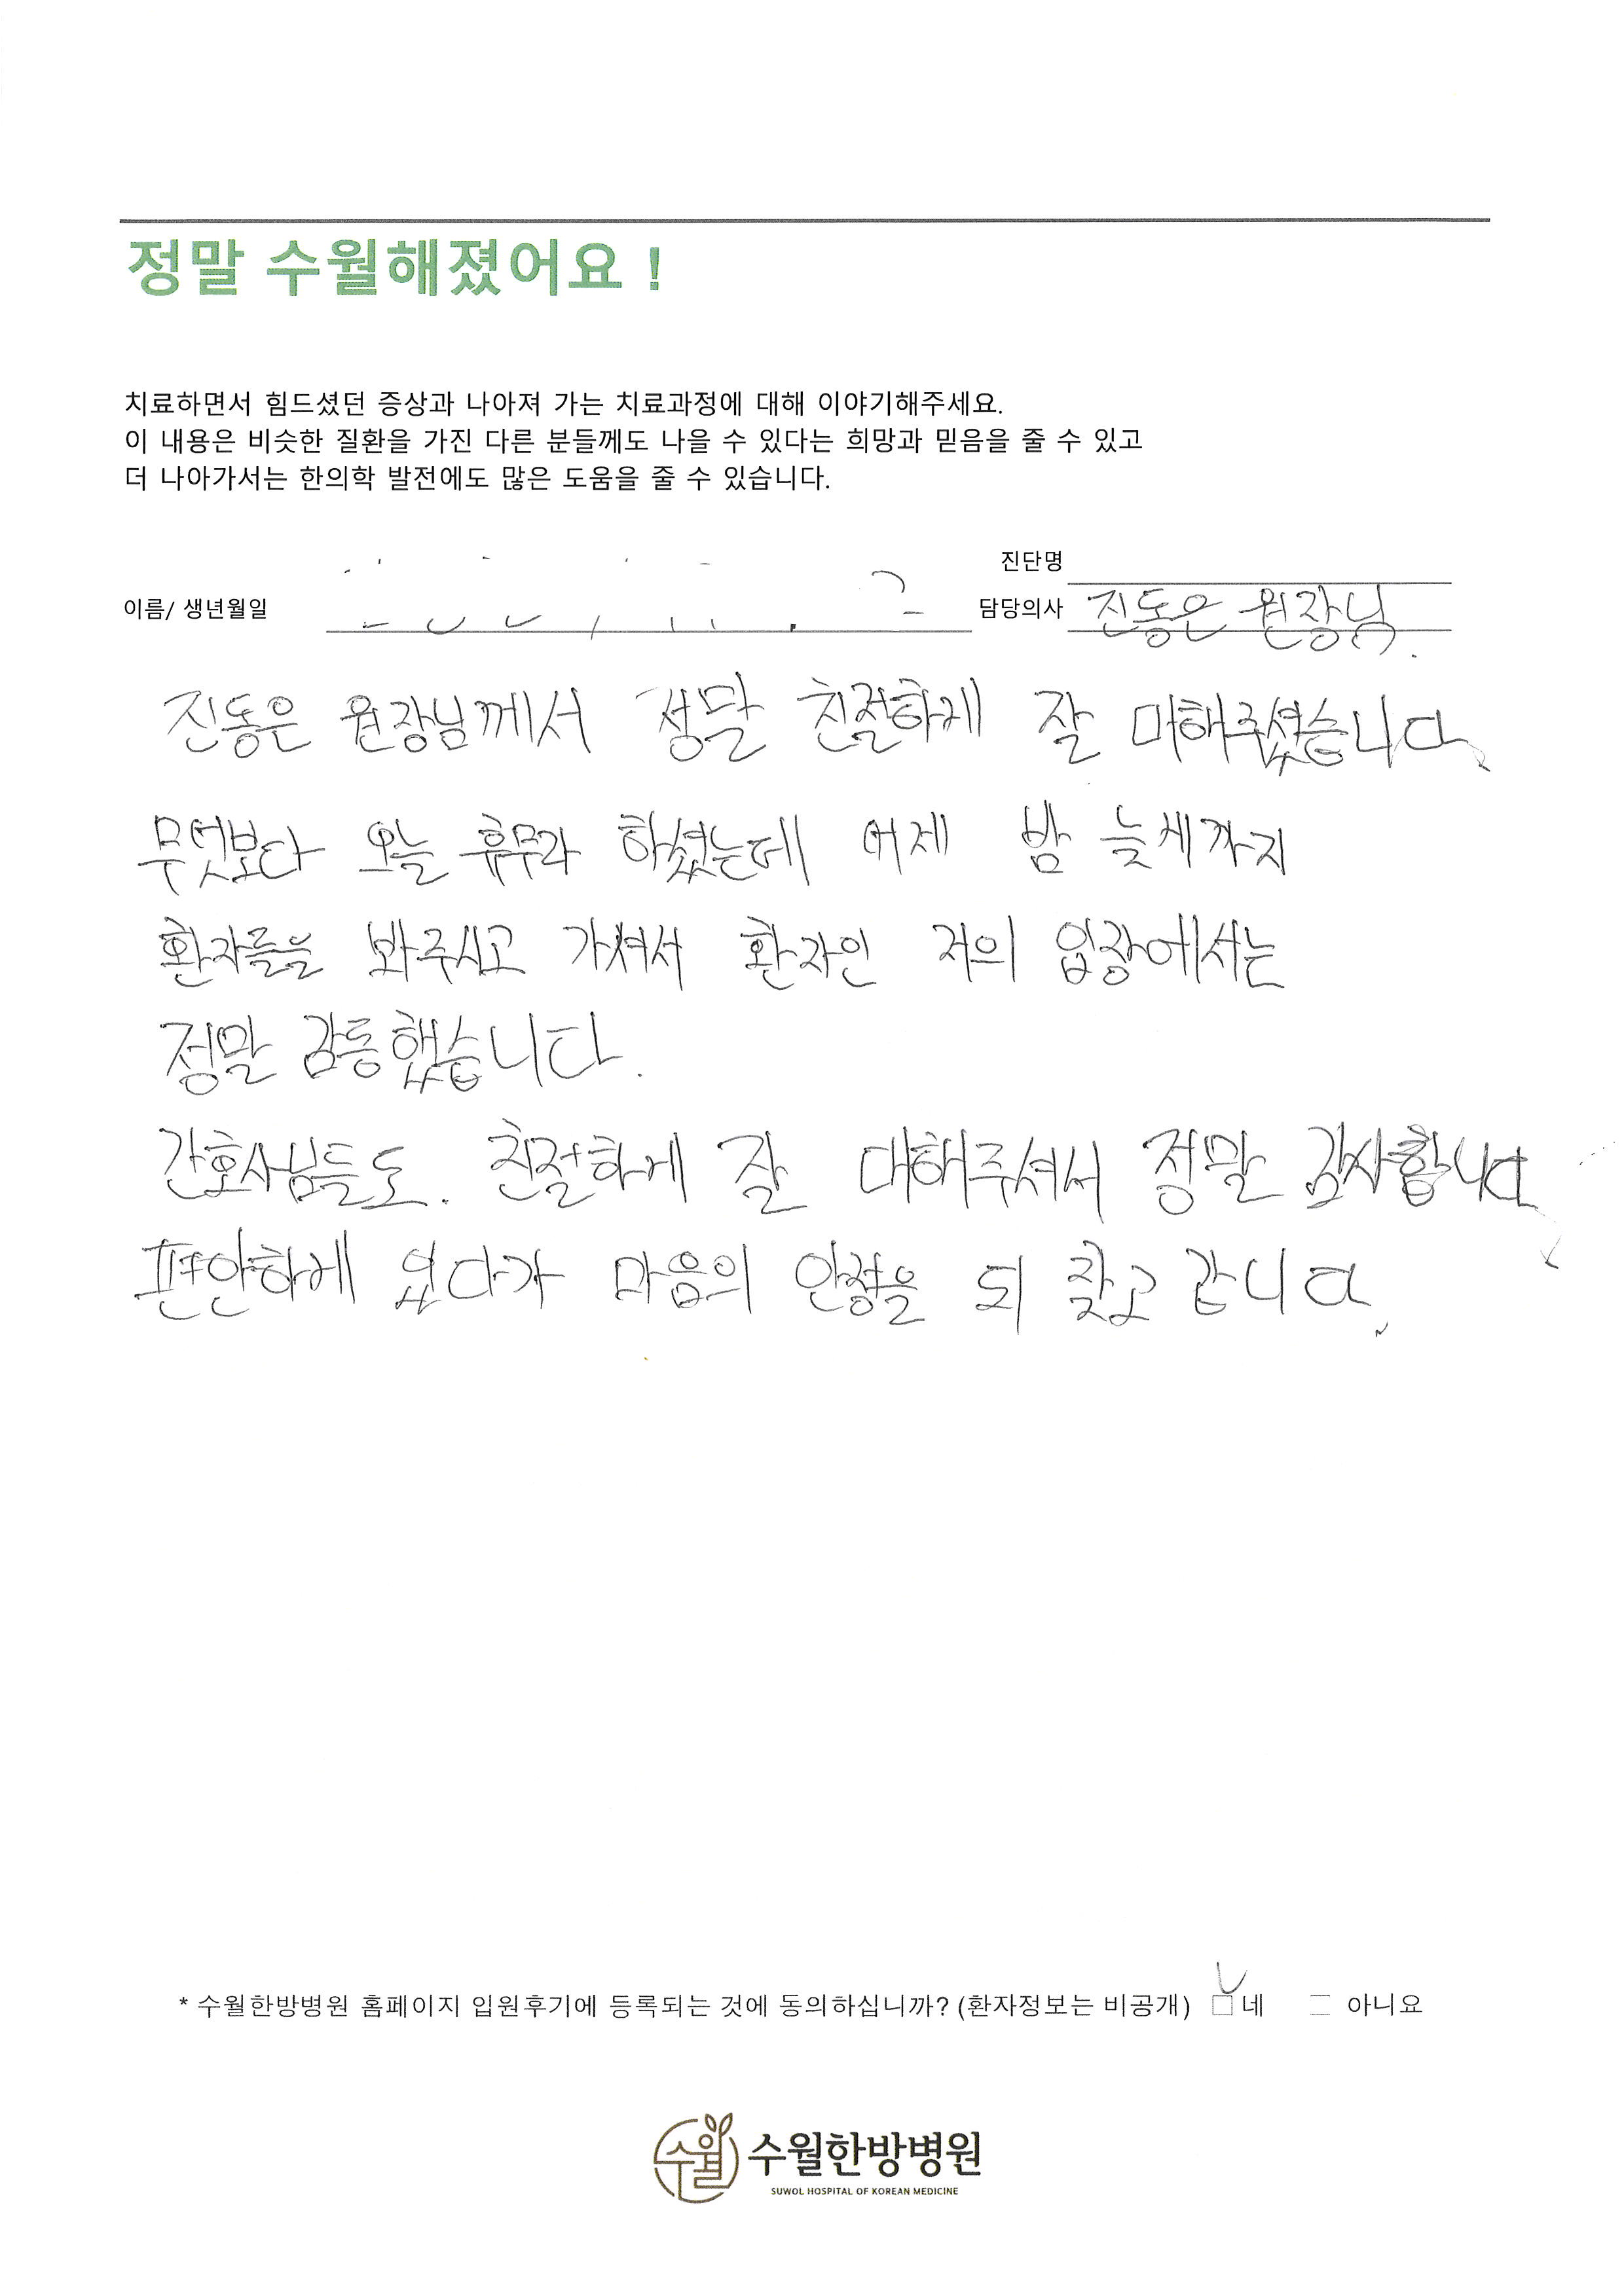 정말 수월해졌어요 !
치료하면서 힘드셨던 증상과 나아져 가는 치료과정에 대해 이야기해주세요.
이 내용은 비슷한 질환을 가진 다른 분들께도 나을 수 있다는 희망과 믿음을 줄 수 있고
더 나아가서는 한의학 발전에도 많은 도움을 줄 수 있습니다.
진단명
이름/ 생년월일 담당의사 진동은 원장님.
진동은 원장님께서 정말 친절하게 잘 대해주셨습니다.
무엇보다 오늘 휴무라 하셨는데 어제 밤 늦세까지
환자들을 봐주시고 가셔서 환자인 저의 입장에서는
정말 감동했습니다.
간호사님들도. 친절하게 잘 대해주셔서 정말 감사합니다
편안하게 있다가 마음의 안정을 되 찾고 갑니다.
* 수월한방병원 홈페이지 입원후기에 등록되는 것에 동의하십니까? (환자정보는 비공개) 네 아니요
수월 수월한방병원
SUWOL HOSPITAL OF KOREAN MEDICINE